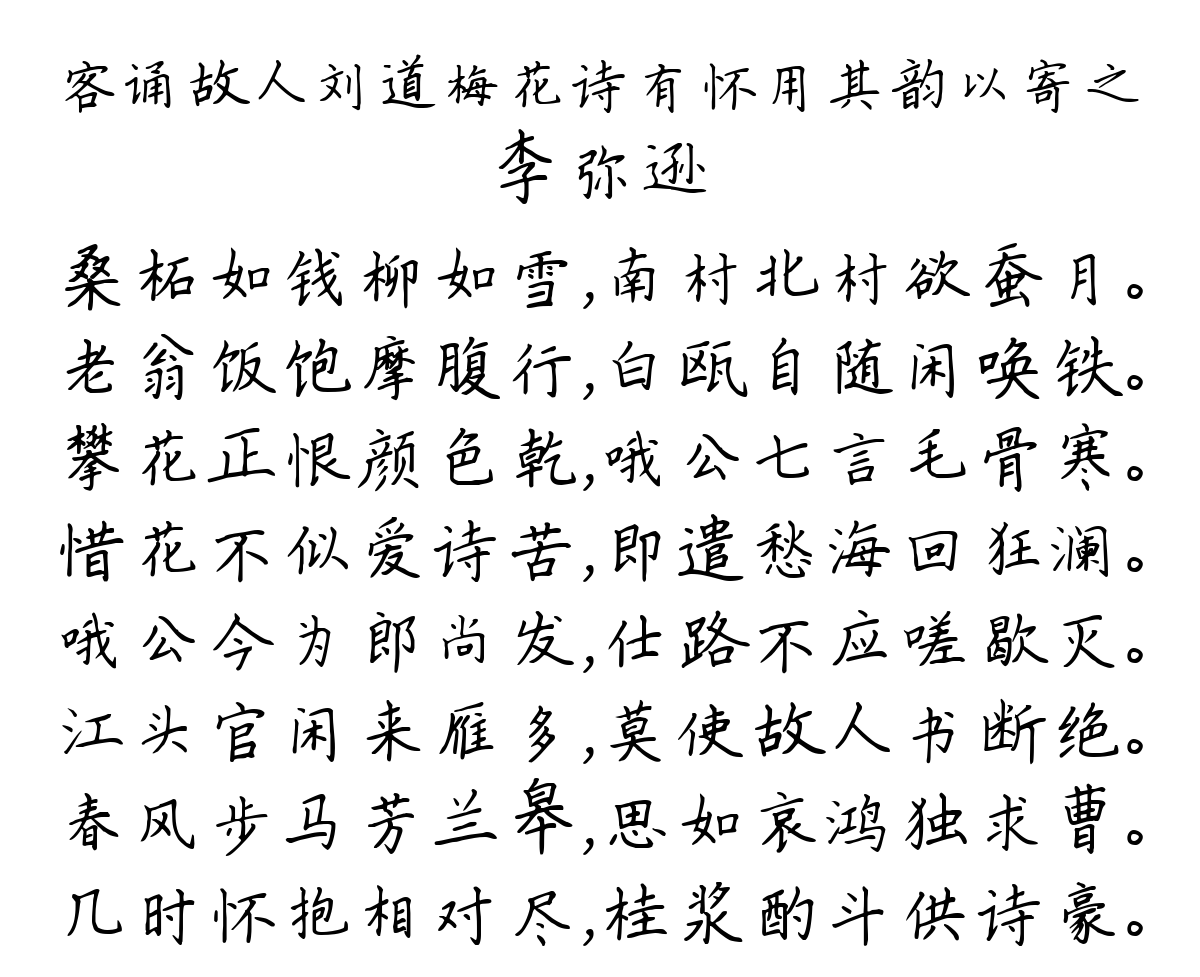 客诵故人刘道梅花诗有怀用其韵以寄之
李弥逊
桑柘如钱柳如雪,南村北村欲蚕月。
老翁饭饱摩腹行,白瓯自随闲唤铁。
攀花正恨颜色乾,哦公七言毛骨寒。
惜花不似爱诗苦,即遣愁海回狂澜。
哦公今为郎尚发,仕路不应嗟歇灭。
江头官闲来雁多,莫使故人书断绝。
春风步马芳兰皋,思如哀鸿独求曹。
几时怀抱相对尽,桂浆酌斗供诗豪。